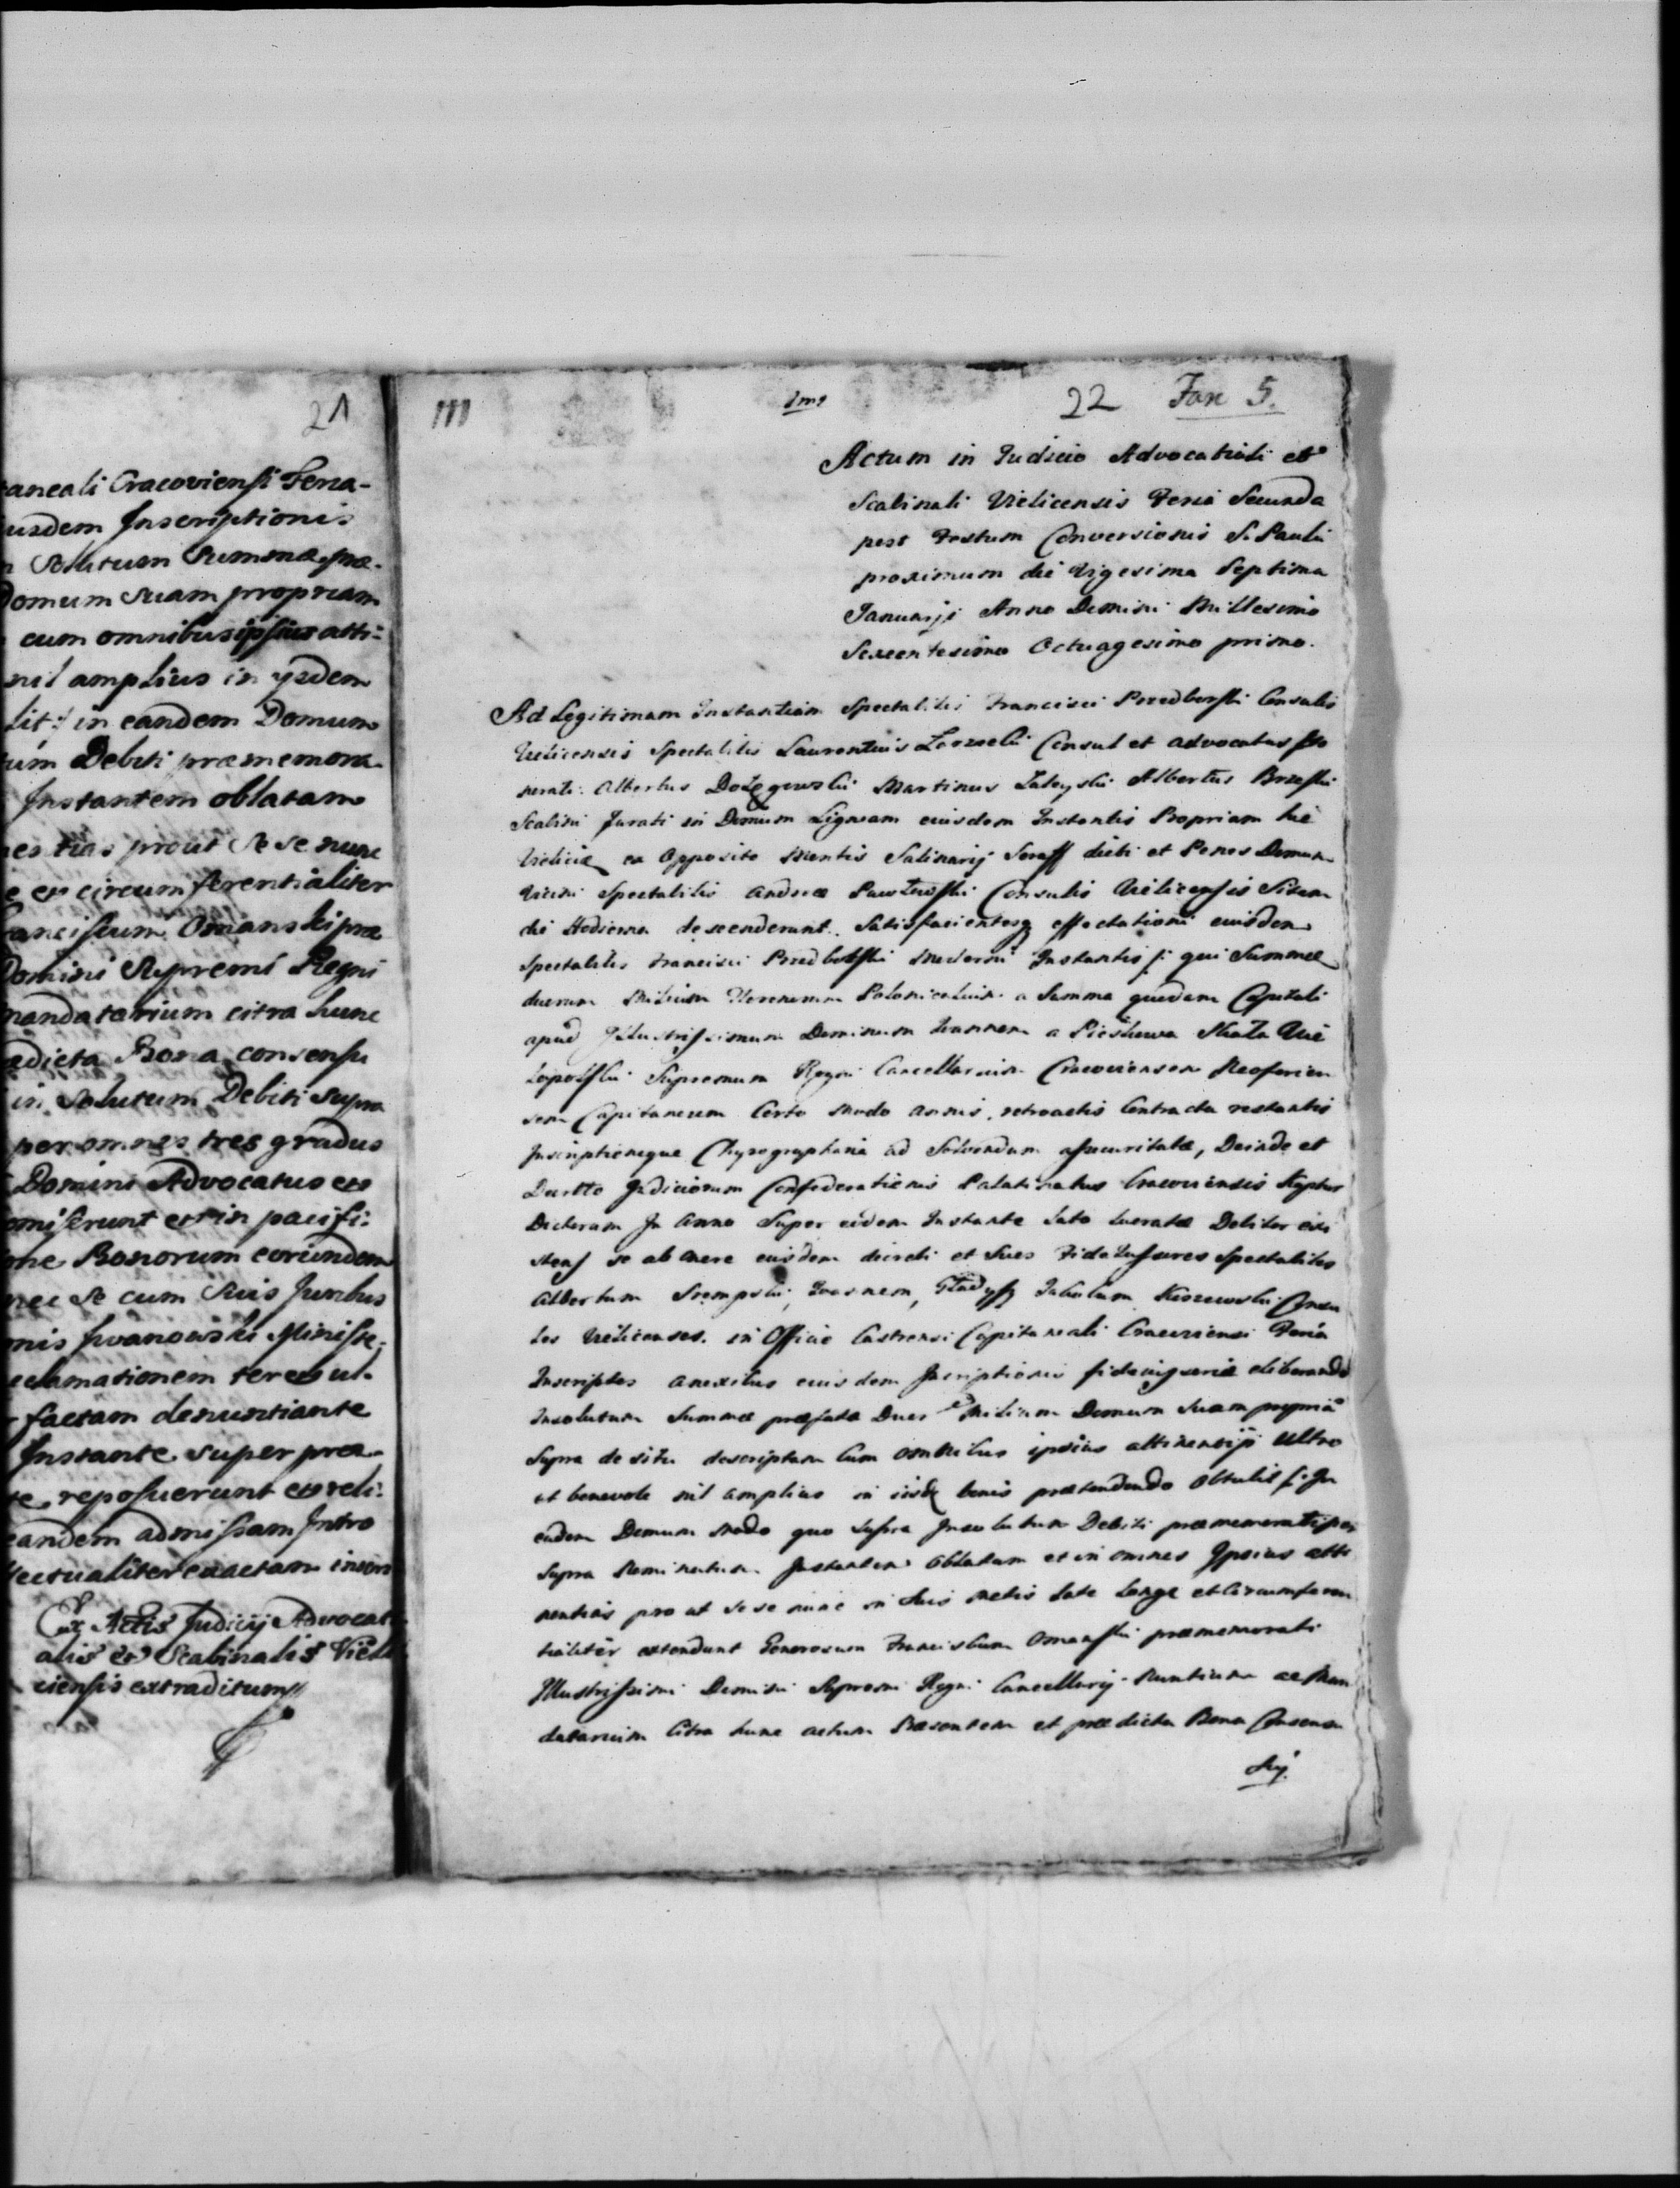 21
taneali Cracoviensi Feria-
iusdem Inscriptionis
Solutum Summæ præ-
Domum Suam propriam
cum omnibus ipsius atti-
nil amplius in ijsdem
lit: in eandem Domum
Debiti præmemora-
Instantem oblatam
nentias prout Se se nunc
e et circumferentialiter
ranciscum Omanski præ
Domini Supremi Regni
mandatarium citra hunc
ædicta Bona consensu
in Solutum Debiti supra
per omnes tres gradus
Domini Advocatus et
omiserunt et in pacifi-
one Bonorum eorundem
nec Se cum Suis Juribus
nis Iwanowski Ministe-
eclamationem
factam denuntiante
Instante super præ-
te reposuerunt et reli-
eandem admissam Intro
ectualiter exactam
Ex Actis Judicij Advocati
alis et Scabinalis Vieli
ciensis extraditum
22 Fax 5.
Actum in Judicio Advocatiali et
Scabinali Vielicensis Feria Secunda
post Festum Conversionis S. Pauli
proximum die Vigesima Septima
Januarij Anno Domini Millesimo
Sexcentesimo Octuagesimo primo.
Ad Legitimam Instantiam Spectabilis Francisci Przedborski Consulis
Vielicensis Spectabilis Laurentius Consul et Advocatus Ju
rati. Albertus Martinus Albertus Brzeski
Scabini Jurati in Domum Ligneam eiusdem Instantis Propriam hic
Vieliciæ ex Opposito Montis Salinarij Seraff dicti et Penes Domum
Vicini Spectabilis Andreæ Consulis Vielicensis Sitam
die Hodierna descenderunt. Satisfacientesq affectationi eiusdem
Spectabilis Francisci Przedborski Moderni Instantis /: qui Summæ
duorum Milium Florenorum Polonicalium a Summa quadam Capitali
apud Illustrissimum Dominum Joannem a Pieskowa Skała Wie
lopolski Supremum Regni Cancellarium Cracoviensem Neoforien
sem Capitaneum Certo Modo annis retroactis Contracta restantis
Inscriptioneque Chyrographaria ad Solvendum assecuratæ, Deinde et
Decretto Judiciorum Confederationis Palatinatus Cracoviensis Kaptur
Dictorum In Anno Super eidem Instante Lato Lucratæ Debitor exi
stens se ab onere eiusdem decreti et Suos Fidejussores Spectabiles
Albertum Srempski, Joannem, Jakobum Consu
les Vielicenses. in Officio Castrensi Capitaneali Cracoviensi Feria
Inscriptos a nexibus eiusdem Inscriptionis fidejussoriæ eliberando
Insolutum Summæ præfatæ Duor Milium Domum Suam propriã
Supra de situ descriptam Cum omnibus ipsius attinentijs Ultro
et benevole nil amplius in iisdẽ bonis prætendendo Obtulit /: In
eadem Domum Modo quo Supra Insolutum Debiti præmemorati per
Supra Nominatum Instantem Oblatam et in omnes Ipsius atti
nentias pro ut se se nunc in Suis metis late Longe et Circumferen
tialiter extendunt Generosum Franciscum Omanski præmemorati
Illustrissimi Domini Supremi Regni Cancellarij Nuntium ac Man
datarium Citra hunc actum Præsentem et prædicta Bona Consensu